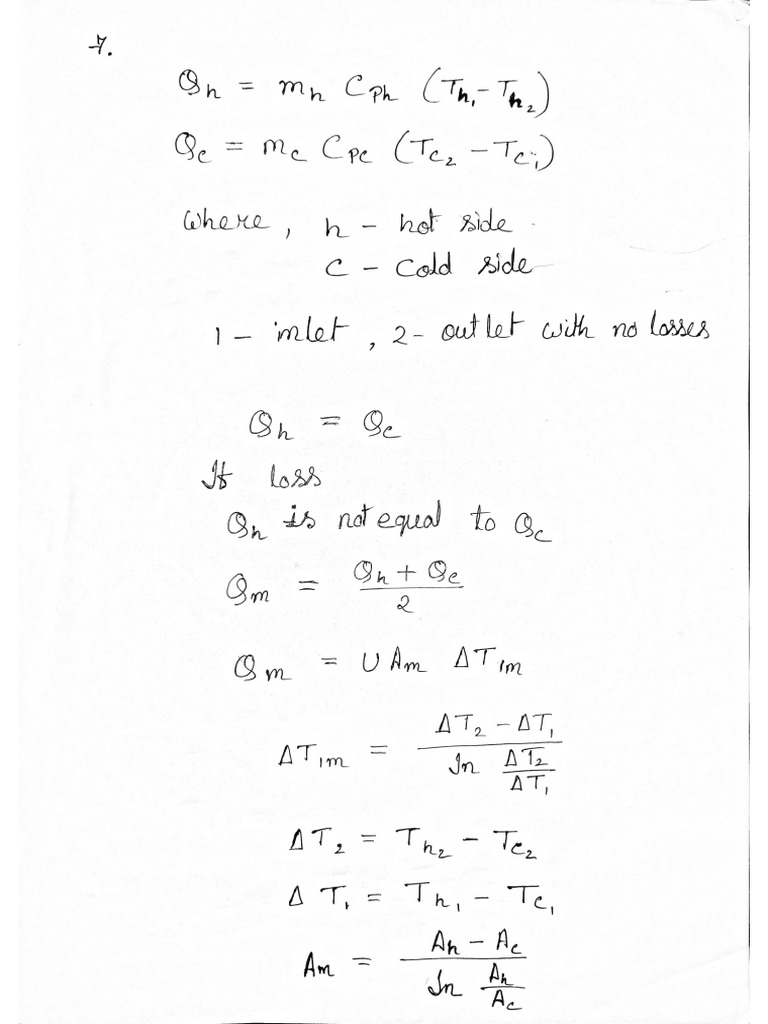 7.
Qh = mh Cph (Th1 - Th2)
Qc = mc Cpc (Tc2 - Tc1)
where, h - hot side.
c - cold side
1 - inlet, 2 - outlet with no losses
Qh = Qc
If loss
Qh is not equal to Qc
Qm = (Qh + Qc)/2
Qm = U Am ΔT1m
ΔT1m = (ΔT2 - ΔT1)/(ln ΔT2/ΔT1)
ΔT2 = Th2 - Tc2
ΔT1 = Th1 - Tc1
Am = (Ah - Ac)/(ln Ah/Ac)